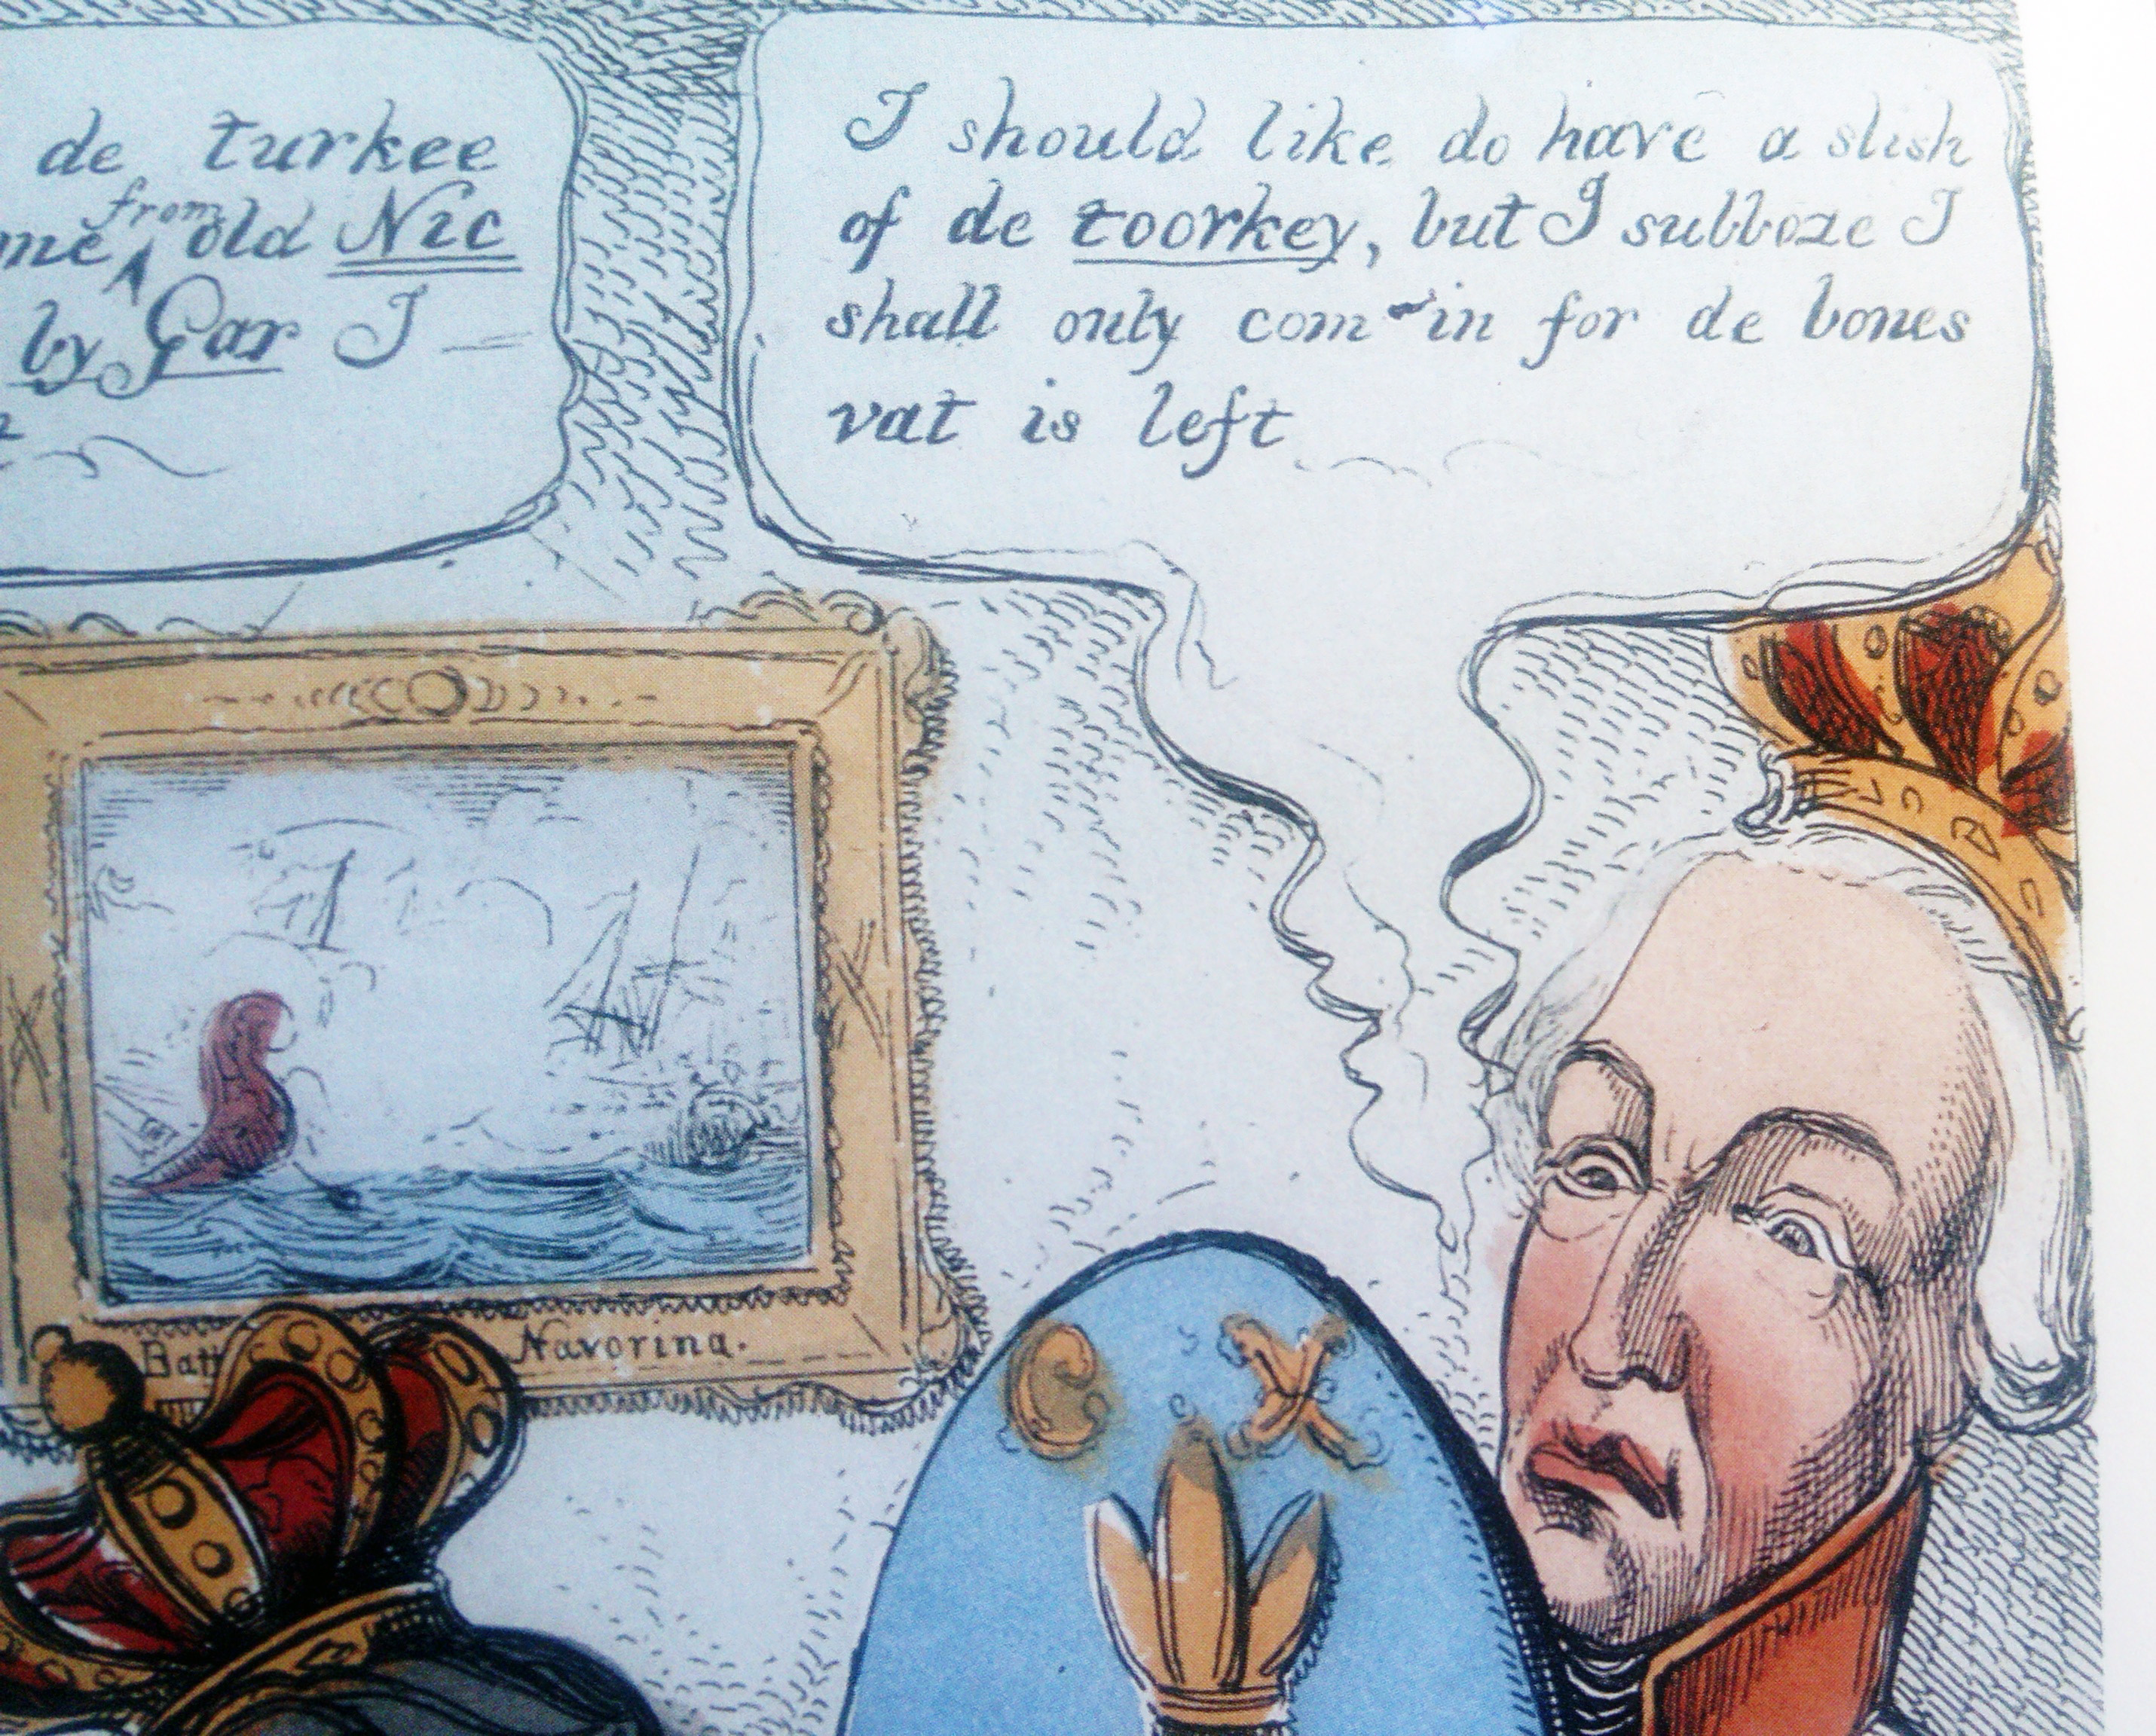 de turkee
me from old Nic
by Gar I
I should like do have a slish
of de toorkey, but I subboze I
shall only com in for de bones
vat is left
Navorina.
C X